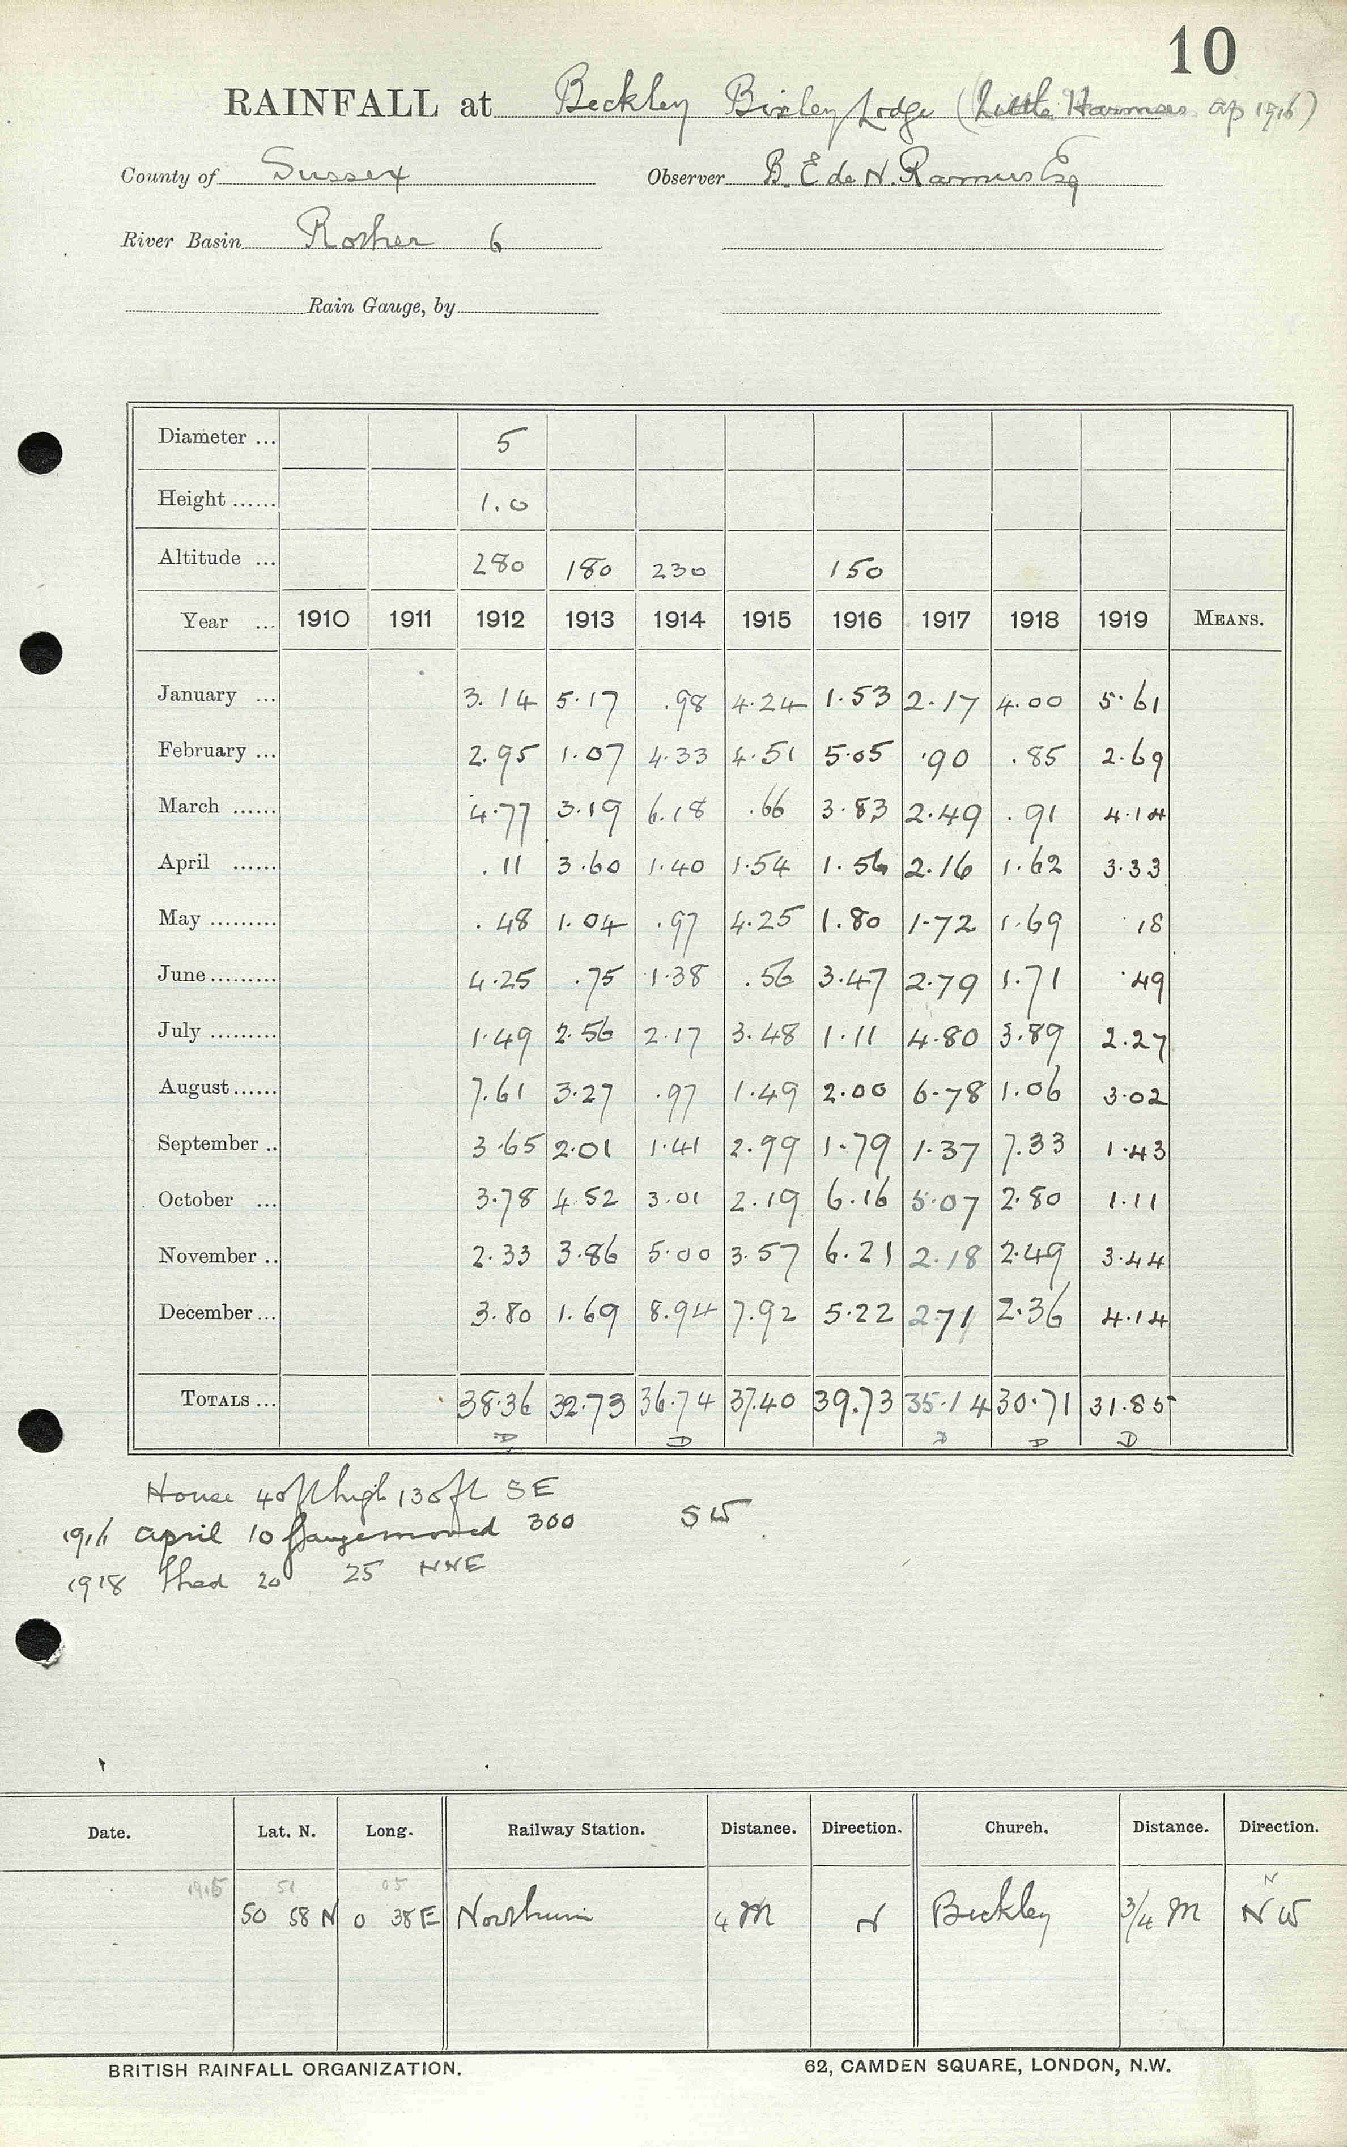 10
RAINFALL at Beckley Bixley Lodge (Little Harmers ap 1916)
County of Sussex Observer B. E de N. Ramus Esq
River Basin Rother 6
Rain Gauge, by
Diameter ... 5
Height ...... 1.0
Altitude ... 280 180 230 150
Year ... 1910 1911 1912 1913 1914 1915 1916 1917 1918 1919 MEANS.
January ... 3.14 5.17 .98 4.24 1.53 2.17 4.00 5.61
February ... 2.95 1.07 4.33 4.51 5.05 .90 .85 2.69
March ...... 4.77 3.19 6.18 .66 3.83 2.49 .91 4.14
April ...... .11 3.60 1.40 1.54 1.56 2.16 1.62 3.33
May ......... .48 1.04 .97 4.25 1.80 1.72 1.69 .18
June ......... 4.25 .75 1.38 .56 3.47 2.79 1.71 .49
July ......... 1.49 2.56 2.17 3.48 1.11 4.80 3.89 2.27
August ...... 7.61 3.27 .97 1.49 2.00 6.78 1.06 3.02
September .. 3.65 2.01 1.41 2.99 1.79 1.37 7.33 1.43
October ... 3.78 4.52 3.01 2.19 6.16 5.07 2.80 1.11
November .. 2.33 3.86 5.00 3.57 6.21 2.18 2.49 3.44
December ... 3.80 1.69 8.94 7.92 5.22 2.71 2.36 4.14
TOTALS ... 38.36 32.73 36.74 37.40 39.73 35.14 30.71 31.85
D D D D D
House 40ft high 130ft SE
1916 april 10 Gauge moved 300 SW
1918 Shed 20 25 NNE
Date. Lat. N. Long. Railway Station. Distance. Direction. Church. Distance. Direction.
1915 51 05 N
50 58 N 0 38 E Northiam 4 M N Beckley 3/4 M NW
BRITISH RAINFALL ORGANIZATION. 62, CAMDEN SQUARE, LONDON, N.W.